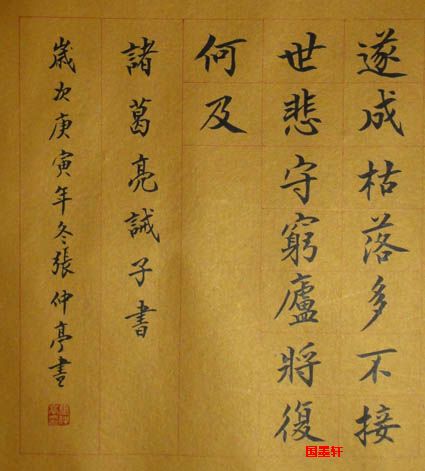 遂成枯落多不接
世悲守窮廬將復
何及
諸葛亮誡子書
歲次庚寅年冬張仲亭書
国墨轩